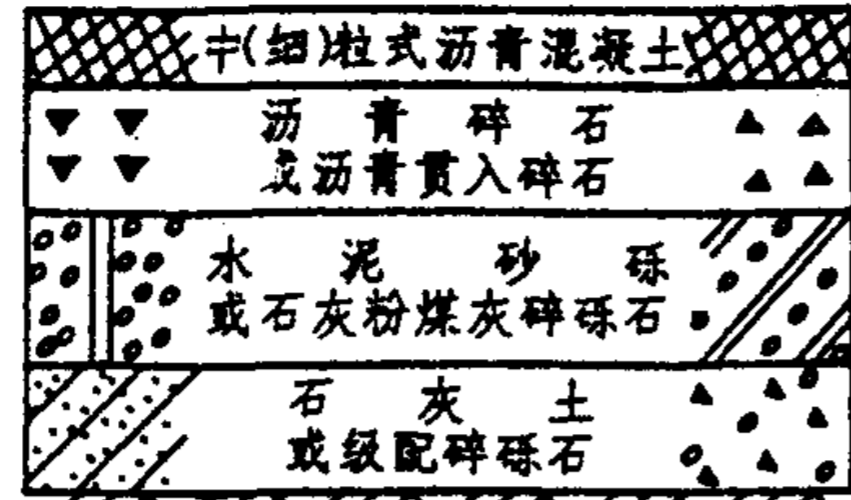 中(细)粒式沥青混凝土
沥青碎石
或沥青贯入碎石
水泥砂砾
或石灰粉煤灰碎砾石
石灰土
或级配碎砾石